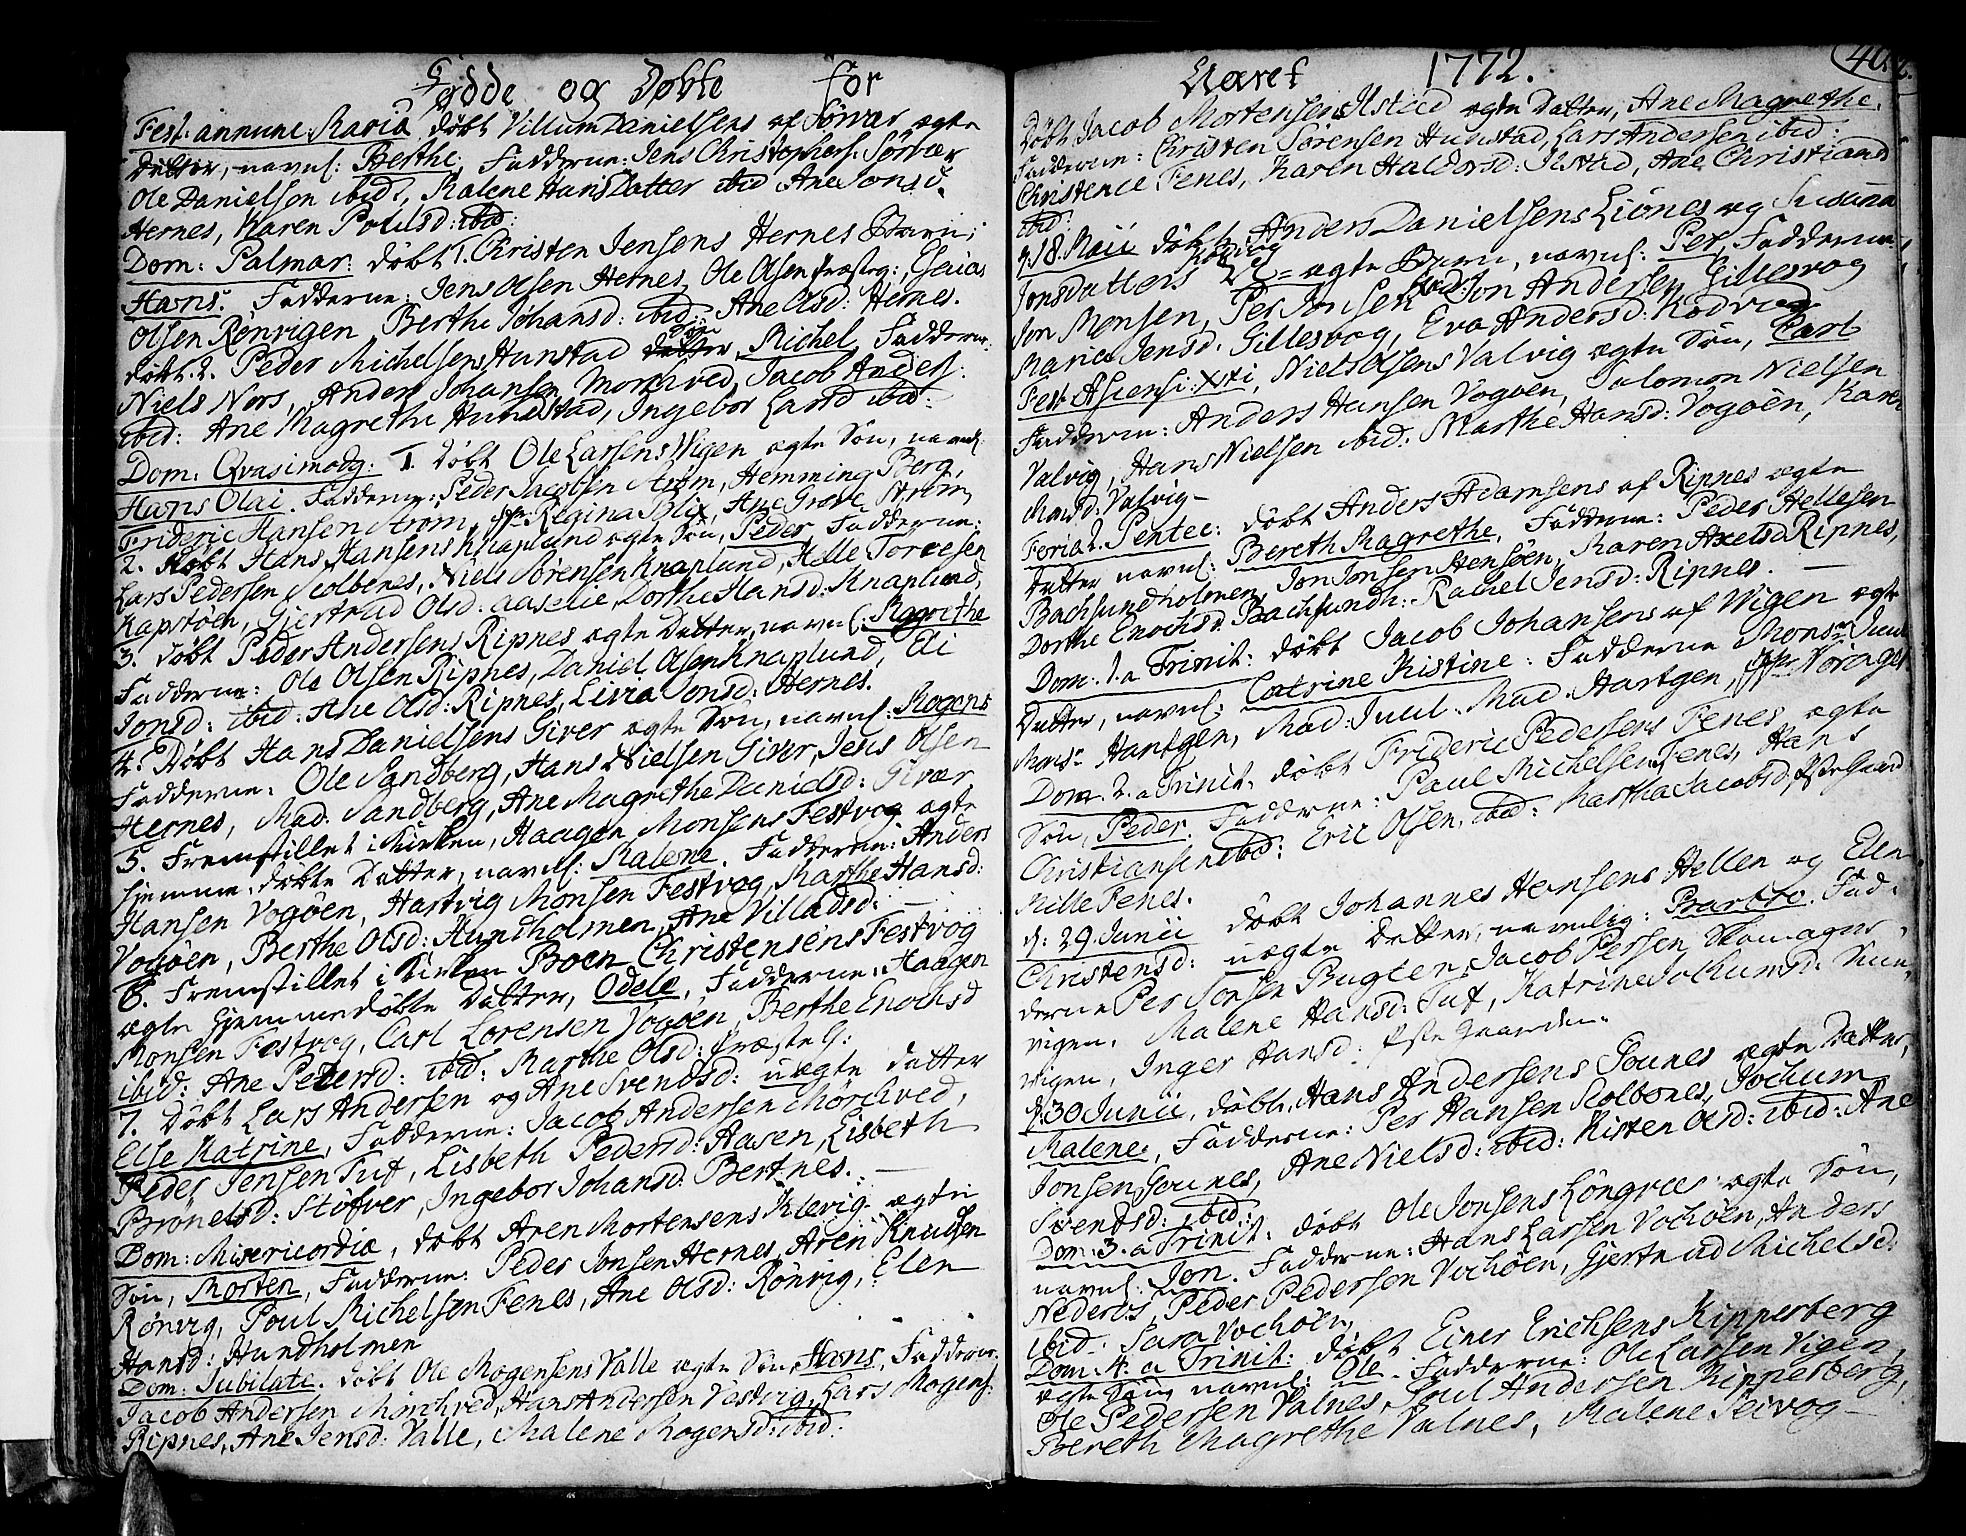 Fødde og Døbte for
Fest: annunc: Maria, døbt Villum Danielsens af Sørvær ægte
Datter, navnl: Berthe, Fadderne: Jens Christophers: Sørvær
Ole Danielsen ibid:, Malene Hans Datter ibid Ane Jonsd.
Hernes, Karen Poulsd: ibid:
Dom: Palmar: døbt 1. Christen Jensens Hernes Barn:
Hans. Fadderne: Jens Olsen Hernes, Ole Olsen Præsteg:, Esaias
Olsen Rønvigen Berthe Johansd: ibid: Ane Olsd: Hernes.
døbt. 2. Peder Michelsens Hunstad Søn, Michel, Fadderne:
Niels Nors, Anders Johansen Mørchved, Jacob Anders:
ibid: Ane Magrethe Hunnstad, Ingebor Larsd ibid:
Dom: Qvasimodg: 1. døbt Ole Larsens Wigen ægte Søn, navnl:
Hans Olai. Fadderne: Peder Jacobsen Strøm, Hemming Berg,
Frideric Hansen Strøm, Regina Blix, Ane Greve Strøm,
2. døbt Hans Hansens Knaplund ægte Søn, Peder Fadderne:
Lars Pedersen Scolbenes, Niels Sørensen Knaplund, Helle Torresen
Kapstøen, Gjertrud Olsd: Aaselie, Dorthe Hansd: Knaplund,
3. døbt Peder Andersens Ripnes ægte Datter, navnl: Magrethe
Fadderne: Ole Olsen Ripnes, Daniel Olsen Knaplund, Eli
Jonsd: ibid: Ane Olsd: Ripnes, Livia Jonsd: Hernes.
4. Døbt Hans Danielsens Giver ægte Søn, navnl: Mogens
Fadderne: Ole Sandberg, Hans Nielsen Giver, Jens Olsen
Hernes, Mad. Sandberg, Ane Magrethe Danielsd: Givær
5. Fremstillet i Kirken, Haagen Monsens Festvog ægte
hjemme: døbte Datter, navnl: Malene. Fadderne: Anders
Hansen Vogøen, Hartvig Monsen Festvog, Marthe Hansd:
Vogøen, Berthe Olsd: Hundholmen, Ane Villadsd:
6. Fremstillet i Kirken Boen Christensens Festvog
ægte hjemmedøbte Datter, Odele, Fadderne: Haagen
Monsen Festvog, Carl Lorensen Vogøen, Berthe Enochsd
ibid: Ane Pedersd: ibid: Marthe Olsd: Præsteg:
7. Døbt Lars Andersen og Ane Svendsd: uægte datter
Else Katrine, Fadderne: Jacob Andersen Mørchved,
Peder Jensen Tuf, Lisbeth Pedersd: Aasen, Lisbeth
Brønelsd: Støfver, Ingebor Johansd: Bertnes.
Dom: Misericordiæ, døbt Aren Mortensens Klevig ægte
Søn, Morten, Fadderne: Peder Jonsen Hernes, Aren Knudsen
Rønvig, Poul Michelsen Fenes, Ane Olsd: Rønvig, Elen
Hansd: Hundholmen
Dom: Jubilate. døbt Ole Mogensens Valle ægte Søn Hans, Fadderne.
Jacob Andersen Mørchved, Hans Andersen Vestvig, Lars Mogens:
Ripnes, Ane Jensd: Valle, Malene Mogensd: ibid:
Aaret 1772.
40.
Døbt Jacob Mortensens Ilstad ægte Datter, Ane Magrethe,
Fadderne: Christen Sørensen Hunstad, Lars Andersen ibid:
Christence Fenes, Karen Haldorsd: Ilstad, Ane Christiansd
ibid:
d. 18. Maii døbt Anders Danielsens Liønes og Susanna
Jonsdatters uægte Barn, navnl: Per, Fadderne
Jon Monsen, Per Jonsen ibid: Jon Andersen Gillesvog
Maria Jensd. Gillesvog, Eva Andersd: Kodvog
Fest: Ascensi: Xsti, Niels Olsens Valvig ægte Søn, Carl
Fadderne: Anders Hansen Vogøen, Salomon Nielsen
Valvig, Hans Nielsen ibid: Marthe Hansd: Vogøen, Karen
Monsd: Valvig
Feria 2. Pentec: døbt Anders Adamsens af Ripnes ægte
Datter navnl: Bereth Magrethe, Fadderne: Peder Hellesen
Bachsundholmen, Jon Jonsen Hensøen, Karen Axelsd Ripnes,
Dorthe Enochsd. Bachsundh: Rachel Jensd: Ripnes.
Dom. 1. a Trinit: døbt Jacob Johansens af Wigen ægte
Datter, navnl: Catrine Kistine: Fadderne Monsr. Juul
Monsr. Hartgen, Mad: Juul. Mad. Hartgen,
Dom. 2. a Trinit. døbt Frideric Pedersens Fenes ægte
Søn, Peder. Fadderne: Paul Michelsen Fenes, Hans
Christiansen ibid: Eric Olsen, ibid: Martha Jacobsd,
Mille Fenes.
d: 29. Junii døbt Johannes Hansens Hellen og Elen
Christensd: uægte Datter, navnlig: Fad-
derne Per Jonsen Bugten, Jacob Persen
vigen, Malene Hansd: Tuf, Katrine Jochumsd:
vigen, Inger Hansd:
d. 30 Junii, døbt, Hans Andersens Sounes ægte Datter,
Malene, Fadderne: Per Hansen Scolbones, Jochum
Jonsen Sounes, Ane Nielsd: ibid: Kisten Olsd: ibid: Ane
Svendsd: ibid:
Dom: 3. a Trinit: døbt Ole Jonsens Løngraes ægte Søn,
navnl: Jon. Fadderne: Hans Larsen Vochøen, Anders
Nederaas, Peder Pedersen Vochøen, Gjertrud Michelsd:
ibid: Sara Vochøen,
Dom. 4. a Trinit: døbt Einer Erichsens Kipperberg
ægte Søn, navnl: Ole. Fadderne: Ole Larsen Vigen,
Ole Pedersen Valnes, Poul Andersen Kipperberg,
Bereth Magrethe Valnes, Malene Seivog